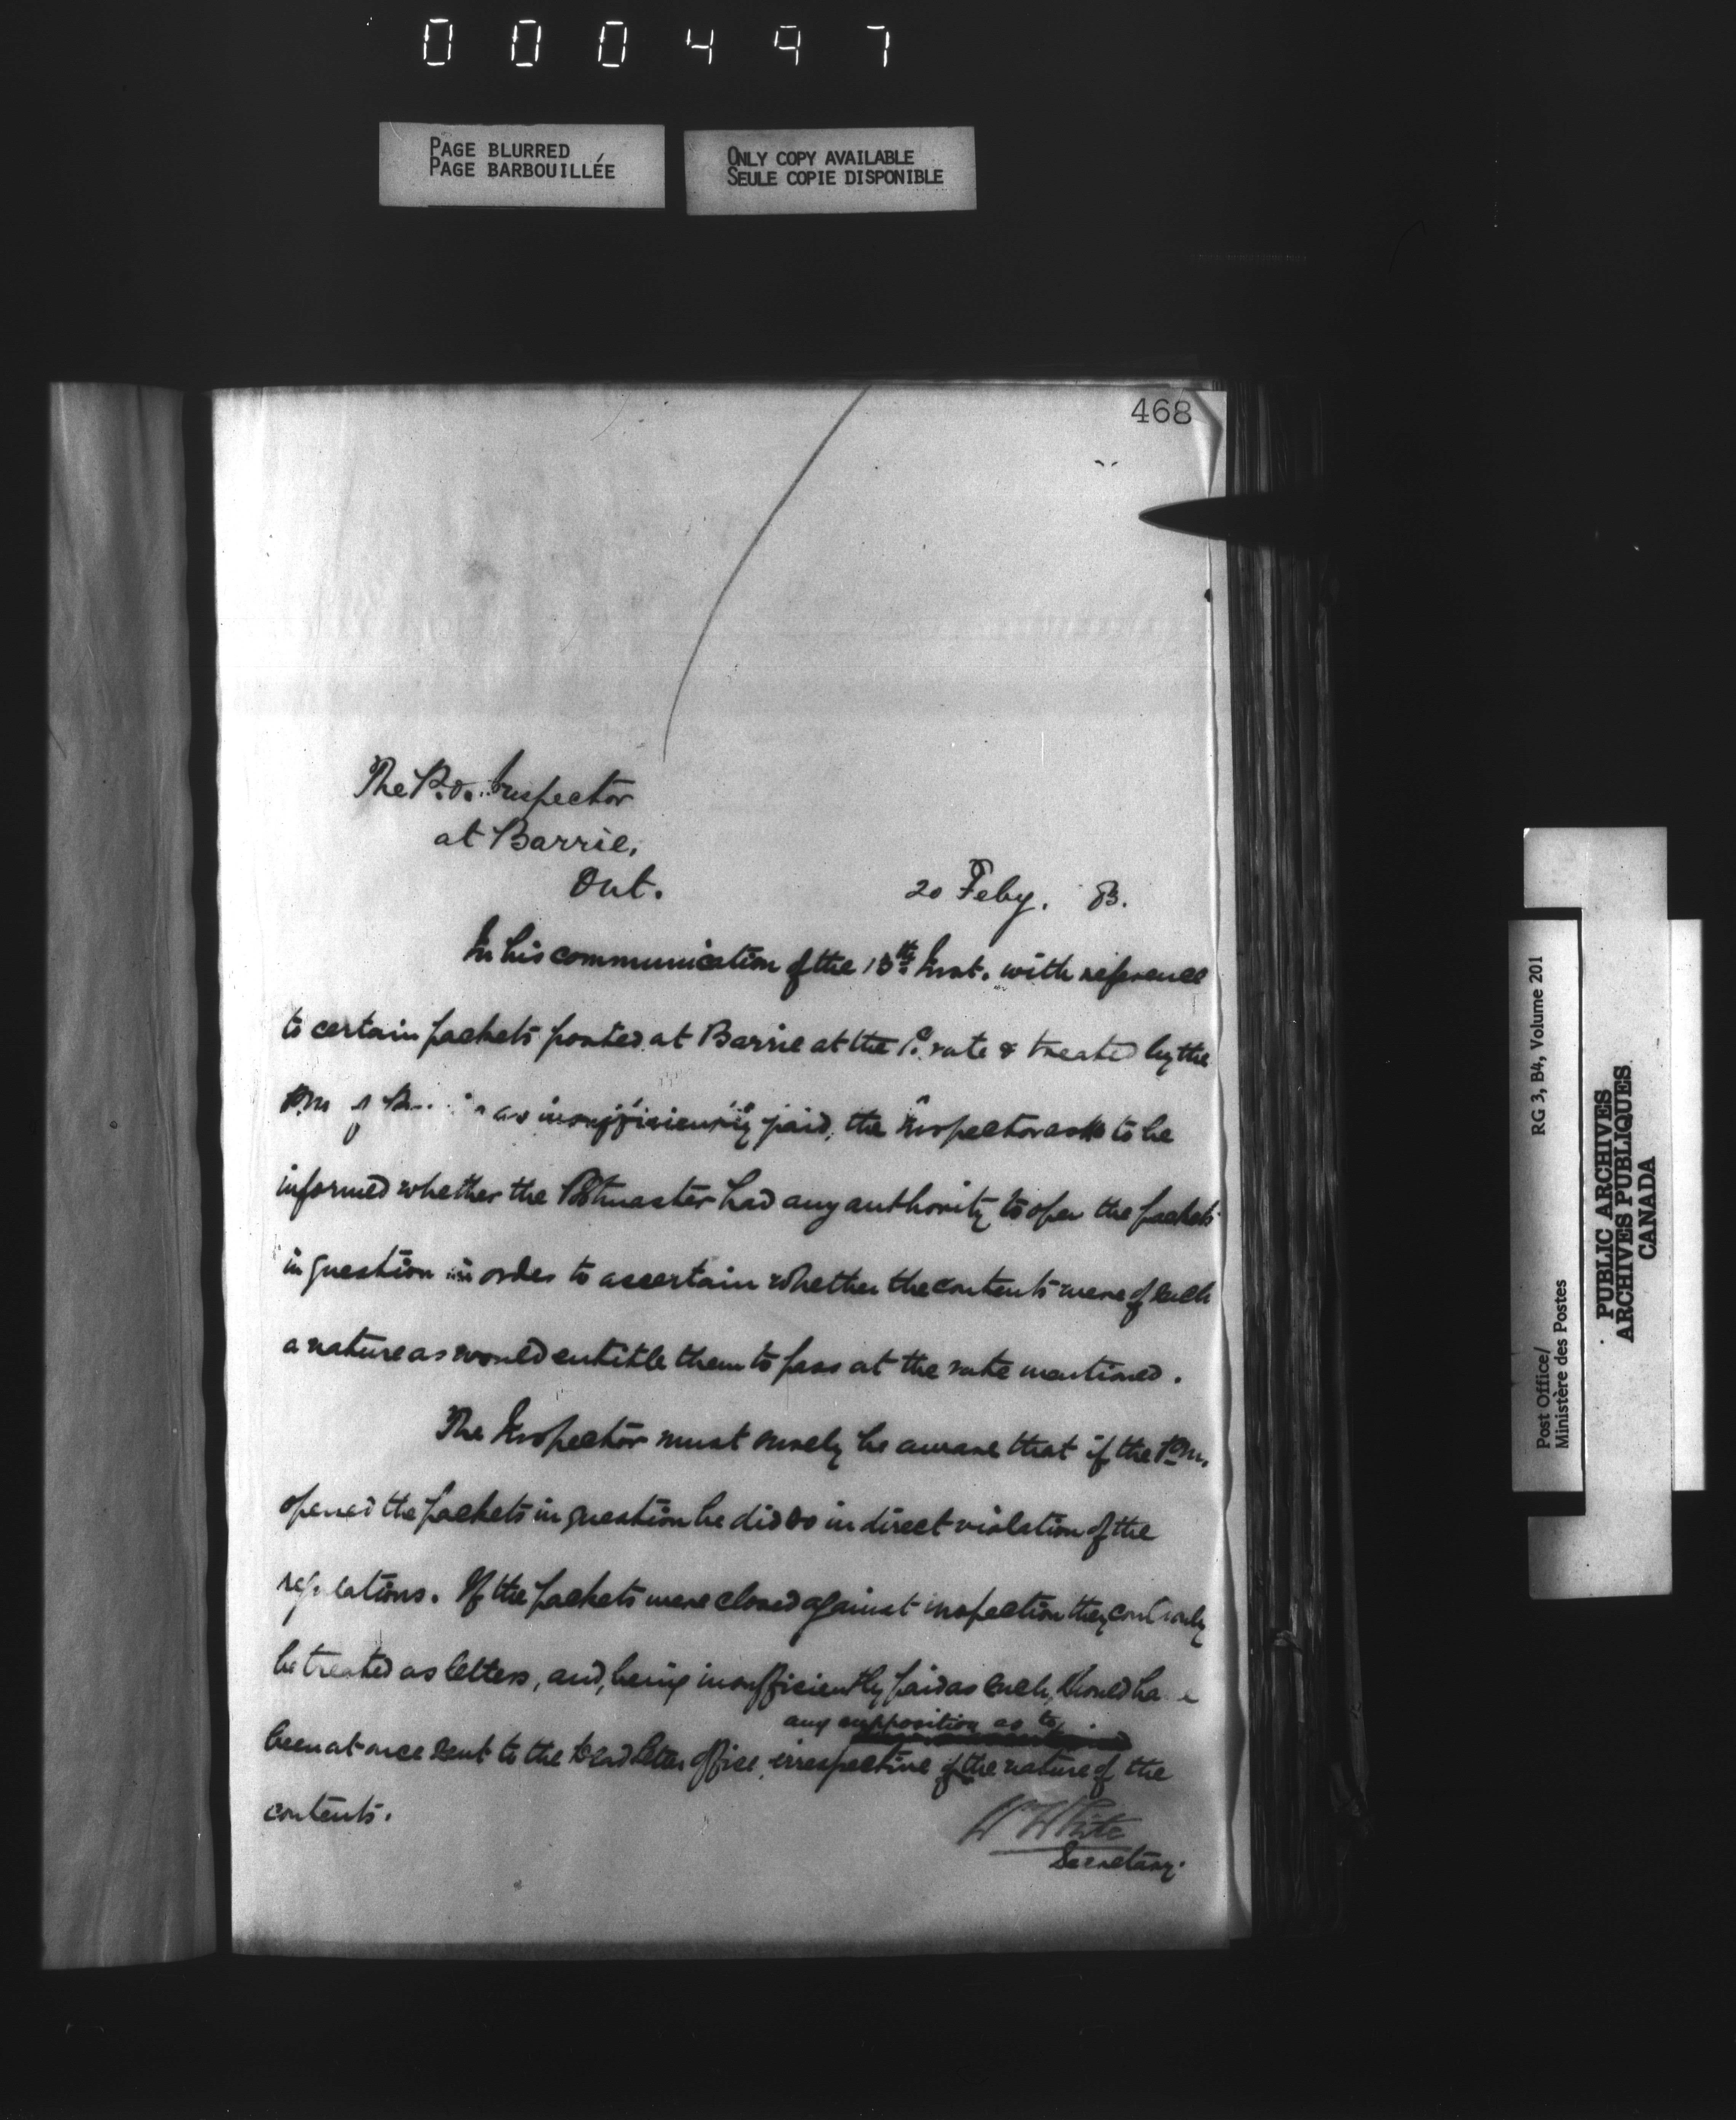 000497
PAGE BLURRED
PAGE BARBOUILLÉE
ONLY COPY AVAILABLE
SEULE COPIE DISPONIBLE
468
The P.O. Inspector
at Barrie,
Ont.
20 Feby. 83.
In his communication of the 15th Inst. with reference
to certain packets posted at Barrie at the 1c. rate & treated by the
P.M. of as insufficiently paid, the Inspector asks to be
informed whether the Postmaster had any authority to open the packets
in question in order to ascertain whether the contents were of such
a nature as would entitle them to pass at the rate mentioned.
The Inspector must surely be aware that if the P.M.
opened the packets in question he did so in direct violation of the
regulations. If the packets were closed against inspection they could only
be treated as letters, and, being insufficiently paid as such, should have
any supposition as to
been at once sent to the Dead Letter Office, irrespective of the nature of the
contents.
W White
Secretary.
Post Office/
Ministère des Postes
RG 3, B4, Volume 201
PUBLIC ARCHIVES
ARCHIVES PUBLIQUES
CANADA